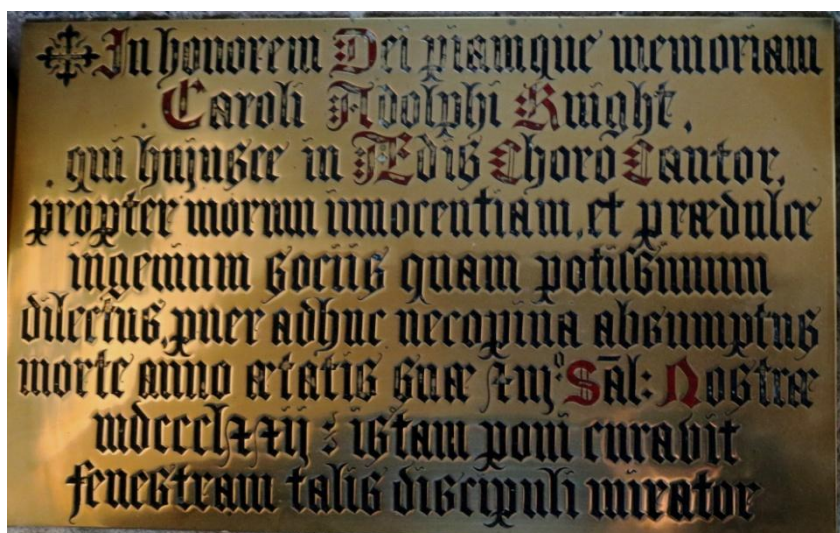 In honorem Dei piamque memoriam
Caroli Adolphi Knight,
qui hujusce in Ædis Choro Cantor,
propter morum innocentiam, et prædulce
ingenium sociis quam potissimum
dilectus, puer adhuc necopina absumptus
morte anno ætatis suæ xiijº Sāl: Nostræ
mdccclxxij : istam poni curavit
fenestram talis discipuli mirator